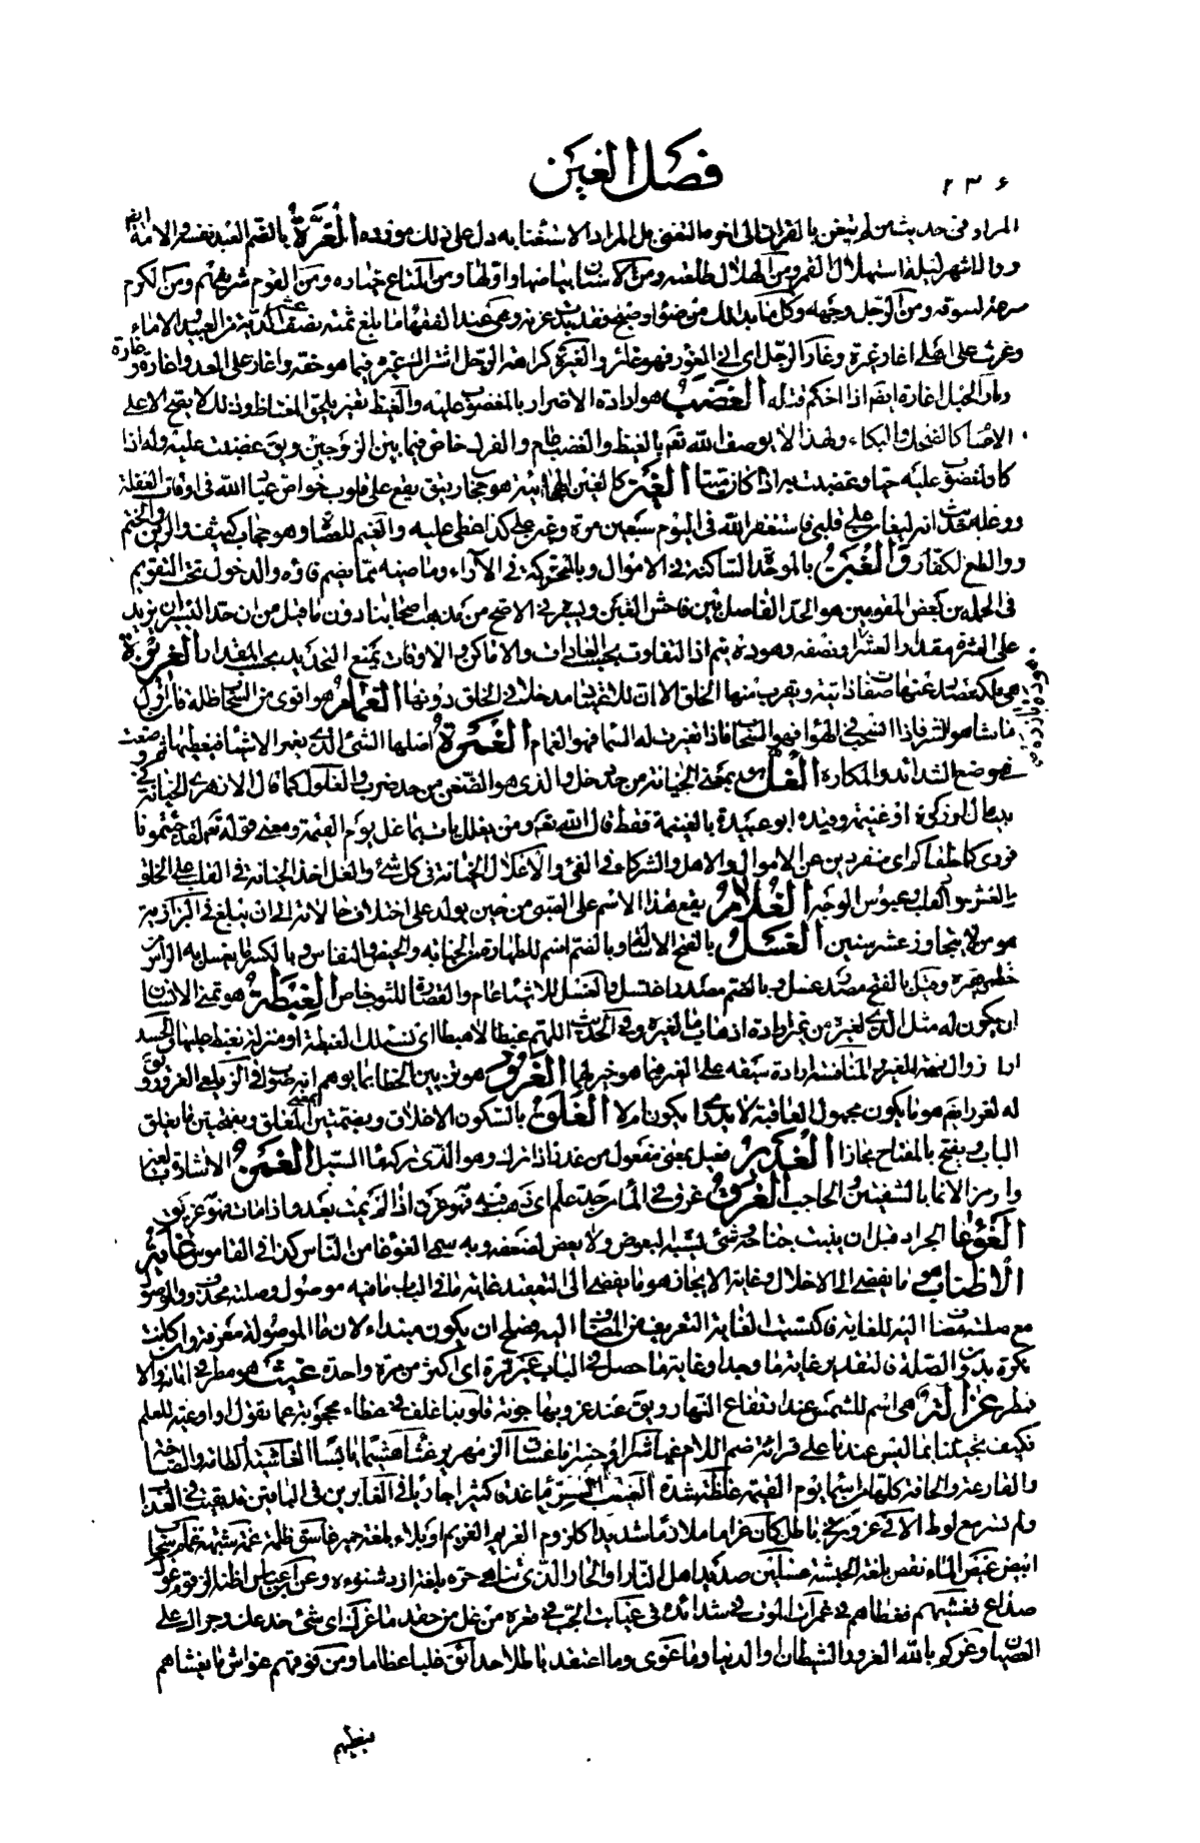 ٢٣٤
فصل الغين
المراد في حديث من لم يتغن بالقرآن إلى آخره التغني بل المراد الاستغناء به دل على ذلك مورده الغرة بالضم العبد نفسه والامة
ومن الشهر ليلة استهلال القمر ومن الهلال طلعته ومن الاسنان بياضها واولها ومن المتاع خياره ومن القوم شريفهم ومن الكرم
سرعة بسوقه ومن الرجل وجهه وكل ما بدا لك من ضوء او صبح فقد بدت غرته وهي عند الفقهاء ما بلغ ثمنه نصف عشر الدية من العبيد والاماء
وغرت على اهلي اغار غيرة وغار الرجل اي اتى الغور فهو غائر والغيرة كراهة الرجل اشتراك غيره فيما هو حقه واغار على العدو اغارة وغارة
واغار الحبل اغارة ايضا اذا احكم فتله الغضب هو ارادة الاضرار بالمغضوب عليه والغيظ تغير يلحق المغتاظ وذلك لا يصح الا على
الاجسام كالضحك والبكاء ولهذا لا يوصف الله تعالى بالغيظ والغضب عام والفرك خاص فيما بين الزوجين ويق غضبت عليه وله اذا
كان المغضوب عليه حيا وغضبت به اذا كان ميتا الغين كالغيم لها بينه هو حجاب رقيق يقع على قلوب خواص عباد الله في اوقات الغفلة
وعليه حديث انه ليغان على قلبي فاستغفر الله في اليوم سبعين مرة وغين على كذا غطى عليه والغيم للعصاة وهو حجاب كثيف والرين والختم
والطبع للكفار والغبن بالموحدة الساكنة في الاموال وبالمتحركة في الآراء وما صيبه مما يضم فاؤه والدخول تحت التقويم
في الجملة من بعض المقومين هو الحد الفاصل بين فاحش الغبن ويسيره في الاصح من مذهب اصحابنا دون ما قيل من ان حد اليسير ان يزيد
على العشرة مقدار العشر او نصفه وهو ده يتم اذ التفاوت بحسب العادات والاماكن والاوقات يمنع التحديد بحسب المقدار الغريزة
هي ملكة تصدر عنها صفات ذاتية ويقرب منها الخلق الا ان للاعتياد مدخلا في الخلق دونها الغمام هو اقوى من السحاب ظلة فاول
ما ينشأ هو النشر فاذا انسحب في الهواء فهو السحاب فاذا تغيرت له السماء فهو الغمام الغمرة اصلها الشيء الذي يغمر الاشياء فيغطيها ثم وضعت
في موضع الشدائد والمكاره الغل هو بمعنى الخيانة من حد دخل والذي هو الضغن من حد ضرب والغلول كما قال الازهري الخيانة في
بيت مال او زكوة او غنيمة وقيده ابو عبيدة بالغنيمة فقط قال الله تعالى ومن يغلل يأت بما غل يوم القيمة ومعنى قوله تعالى لقد جئتمونا
فردى كما خلقناكم اي منفردين عن الاموال والاهل والشركاء في الغي والاغلال الخيانة في كل شيء والغل اخذ الخيانة في القلب على الخلق
بالغش القلب وعبوس الوجه الغلام يقع هذا الاسم على الصبي من حين يولد على اختلاف حالاته الى ان يبلغ
هو من لا يتجاوز عشر سنين الغسل بالفتح الاسالة وبالضم اسم للطهارة من الجنابة والحيض والنفاس وبالكسر ما يغسل به الرأس
خطمي وغيره وقيل بالفتح مصدر غسل وبالضم مصدر اغتسل والغسل للاشياء عام والقصارة للثوب خاص الغبطة هو تمني الانسان
ان يكون له مثل الذي لغيره من غير ارادة اذهاب ما لغيره وفي الحديث اللهم غبطا لا هبطا اي نسئلك الغبطة او منزلة نغبط عليها والحسد
ارادة زوال نعمة الغير والمنافسة ارادة سبقه على الغير فيما هو خير لهما الغرور هو تزيين الخطأ بما يوهم انه صواب في الزيلعي الغرور ويق
له لغرر ايضا هو ما يكون مجهول العاقبة لا يدرى أيكون ام لا الغلق بالسكون الاغلاق وبضمتين المغلق وبفتحتين ما يغلق
الباب ويفتح بالمفتاح مجازا الغدير فعيل بمعنى مفعول من غدر اذا ترك وهو الذي تركه ماء السيل الغمز الاشارة بالعين
والرمز الايماء بالشفتين والحاجب الغرق غرق في الماء من حد علم اي ذهب فيه فهو غرق اذا لم يمت بعد واذا مات فهو غريق
الغوغاء الجراد قبل ان ينبت جناحه وشيء يشبه البعوض ولا يعض لضعفه وبه سمي الغوغاء من الناس كذا في القاموس غاية
الاطناب هو ما يفضي الى الاخلال وغاية الايجاز هو ما يفضي الى التعقيد غاية ما في الباب ما فيه موصول وصلته محذوف والموصول
مع صلته مضاف اليه للغاية فاكتسبت الغاية التعريف من المضاف اليه فصلح ان يكون مبتداء لان ما الموصولة معرفة وان كانت
نكرة بدون الصلة فالتقدير غاية ما وجد او غاية ما حصل في الباب غير مرة اي اكثر من مرة واحدة غيث هو مطر في ابانه والا
فمطر غزالة هي اسم للشمس عند ارتفاع النهار ويق عند غروبها جونة قلوبنا غلف في غطاء محجوبة عما تقول او اوعية للعلم
فكيف تجيئنا بما ليس عندنا على قراءة ضم اللام الزمهرير غثاء هشيما يابسا الغاشية الطامة والصاخة
والقارعة والحاقة كلها من اسماء يوم القيمة غلظة شدة الغيب ماء غدقا كثيرا جاريا في الغابرين في الباقين قد بقيت في العذاب
ولم تسر مع لوط الا في غرور في باطل كان غراما ملازما شديدا كلزوم الغريم الغريم او بلاء بلغة حمير غاسق ظلمة غمة شبهة غمام سحاب
ابيض غيض الماء نقص بلغة الحبشة غسلين صديد اهل النار او الحار الذي تناهى حره بلغة ازد شنوءة وعن ابن عباس اظنه الزقوم غول
صداع فغشيهم فغطاهم في غمرات الموت في شدائده في غيابت الجب في قعره من غل من حقد ما غرك اي شيء خدعك وجرأك على
العصيان وغركم بالله الغرور الشيطان والدنيا وما غوى وما اعتقد باطلا حدائق غلبا عظاما ومن فوقهم غواش ما يغشاهم
فيغطيهم